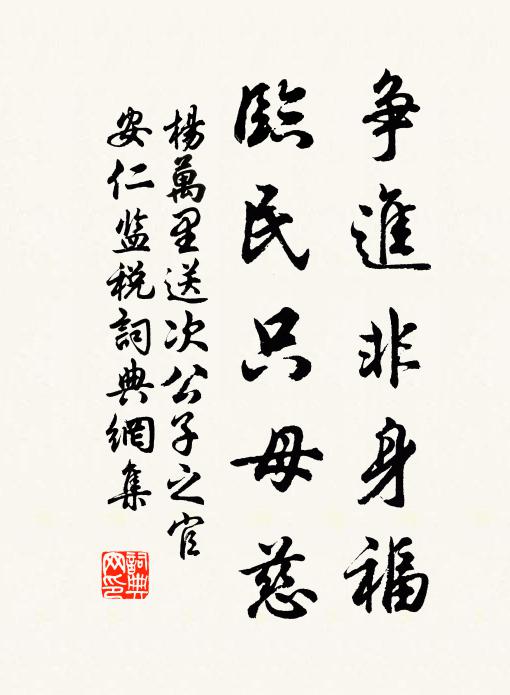 争進非身福
臨民只母慈
楊萬里送次公子之官
安仁监税詞典網集
詞典网印